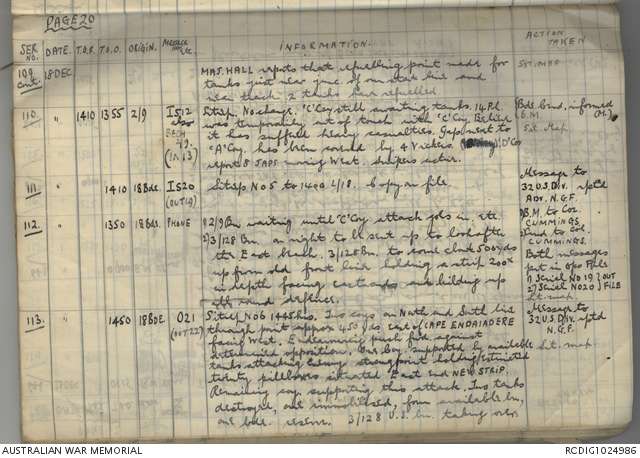 PAGE 20
SER NO. DATE. T.O.R. T.O.O. ORIGIN. MESSAGE No. etc. INFORMATION. ACTION TAKEN
109 Cont. 18 DEC. MAJ. HALL reports that refuelling point made for Sit. map
tanks just near junc. of main track and
near track 2 tanks
110. " 1410 1355 2/9 IS12 Sitrep. No change. 'C' Coy still awaiting tanks. 14 Pl. Bde Comd. informed
was temporarily out of touch with 'C' Coy. Believe B.M.
it has suffered heavy casualties. Gap next to Sit. Map
'A' Coy. has been covered by 4 Vickers. D' Coy
(IN 13) report 8 JAPS moving West. Snipers active.
111. " 1410 18 Bde. IS20 Sitrep No 5 to 1400 L/18. Copy on file. Message to
(OUT 19) 32 U.S. Div. rptd
ADV. N.G.F.
112. " 1350 18 Bde. PHONE 1) 2/9 Bn waiting until 'C' Coy attack goes in, etc. 1) B.M. to Col
CUMMINGS.
2) 3/128 Bn. on right to be sent up to look after 2) Comd to Col.
CUMMINGS.
the East beach. 3/128 Bn. to some about 500 yds Both messages
up from old front line holding a strip 200x put in Ops File
in depth facing eastwards and building up 1) Serial No 19 } OUT
all round defences. 2) Serial No 20 } FILE
Sit. map
113. " 1450 18 BDE. O21 Sitrep No 6 1445 hrs. Two coys on North and South line Message to
(OUT 22) through point approx 450 yds east of CAPE ENDAIADERE 32 U.S. DIV. rptd
facing West. Endeavouring push fwd against N.G.F.
determined opposition. One Coy. supported by available Sit. map.
tanks attacking enemy strongpoint holding estimated
twenty pillboxes situated East End NEW STRIP.
Remaining coy. supporting this attack. Two tanks
destroyed, one immobilised, from available bn,
one bde. reserve. 3/128 U.S. bn. taking over
AUSTRALIAN WAR MEMORIAL
RCDIG1024986